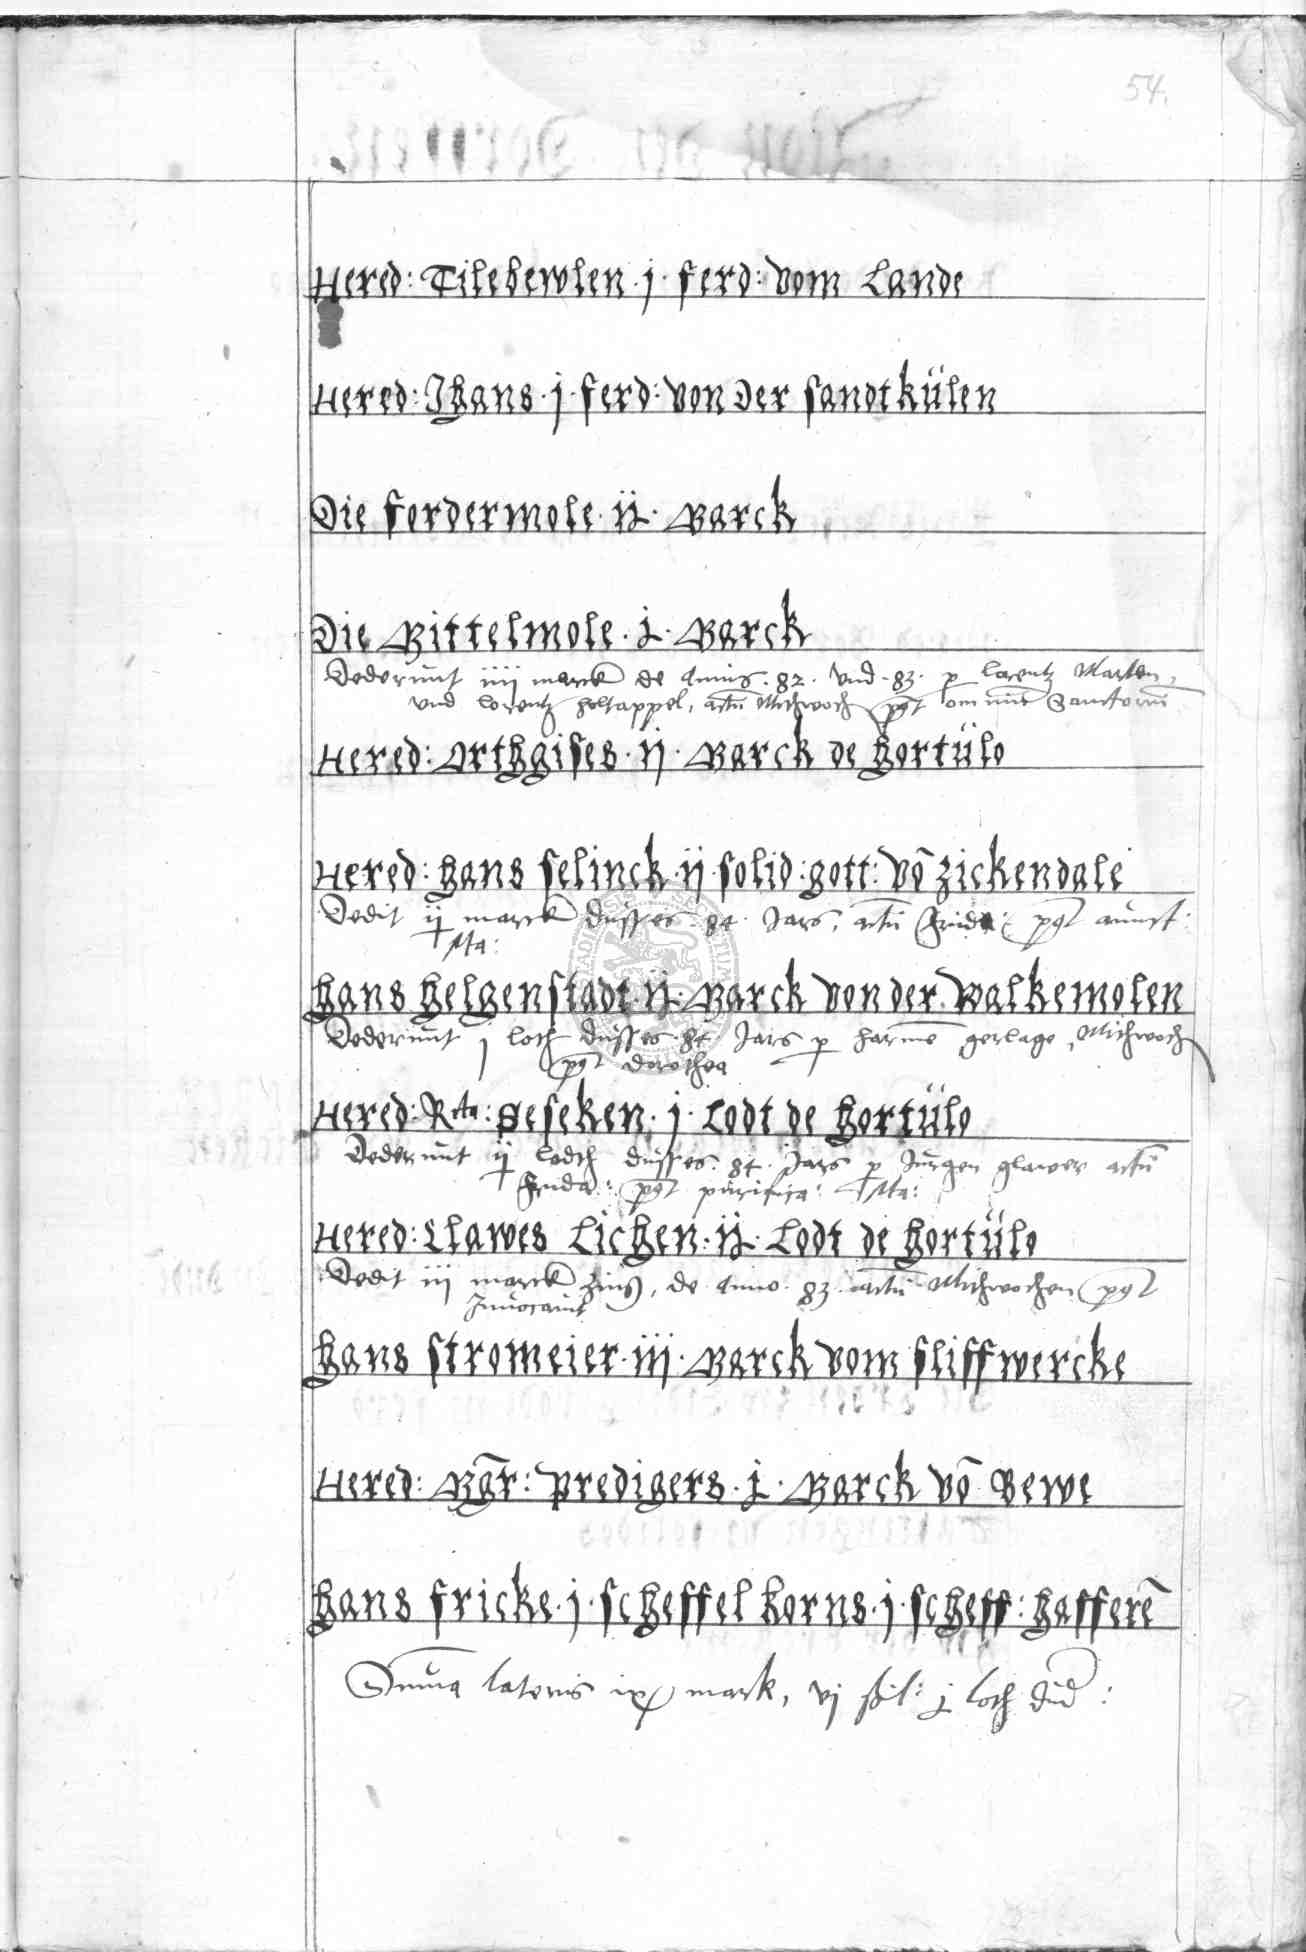 54.
Hered: Tilebewlen · j · ferd: vom Lande
Hered: Jhans · j · ferd: von der sandtkülen
Die fordermole · ij · Marck
Die Mittelmole · j · Marck
Dederunt iiij marck de Annis · 82 · vnd · 83 · p lorentz Marten,
vnd lorentz holtappel, actu Mithwoch post omnium Sanctorum
Hered: Orthgises · ij · Marck de hortülo
Hered: hans selinck · ij · solid: gott: vō zickendale
Dedit ij marck dusses · 84 · Jars, actū post
hans helgenstadt · ij · Marck von der walkemolen
Dederunt j loth dusses · 84 · Jars p harmē gerlage, Mithwoch
post dorothea
Hered: Seseken · j · Lodt de hortülo
Dederunt ij lodth dusses · 84 · Jars p Jurgen glawer actū
post purifica:
Hered: Clawes Lichen · ij · Lodt de hortülo
Dedit iij marck zins, de Anno · 83 · actū Mithwochen post
Jnuocauit
hans stromeier · iij · Marck vom sliffwercke
Hered: Mgr: predigers · j · Marck vō Bewe
hans fricke · j · scheffel korns · j · scheff: hafferē
Suma lateris ix mark, vj sol: j loth